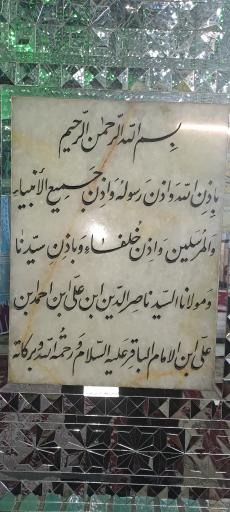 بِسمِ اللّه الرّحمٰن الرّحیم
بِاذنِ اللّه وَاذنِ رَسولِهٖ وَاذنِ جَمیعِ الأنبیاءِ
وَالمُرسَلین وَاذنِ خُلَفاءِهٖ وَبِاذنِ سیّدنا
وَمولانا السیّد ناصرالدّین ابن علی ابن احمد ابن
علی ابن الامام الباقر علیه السّلام وَ رحمةُ اللّه وَبرکاته